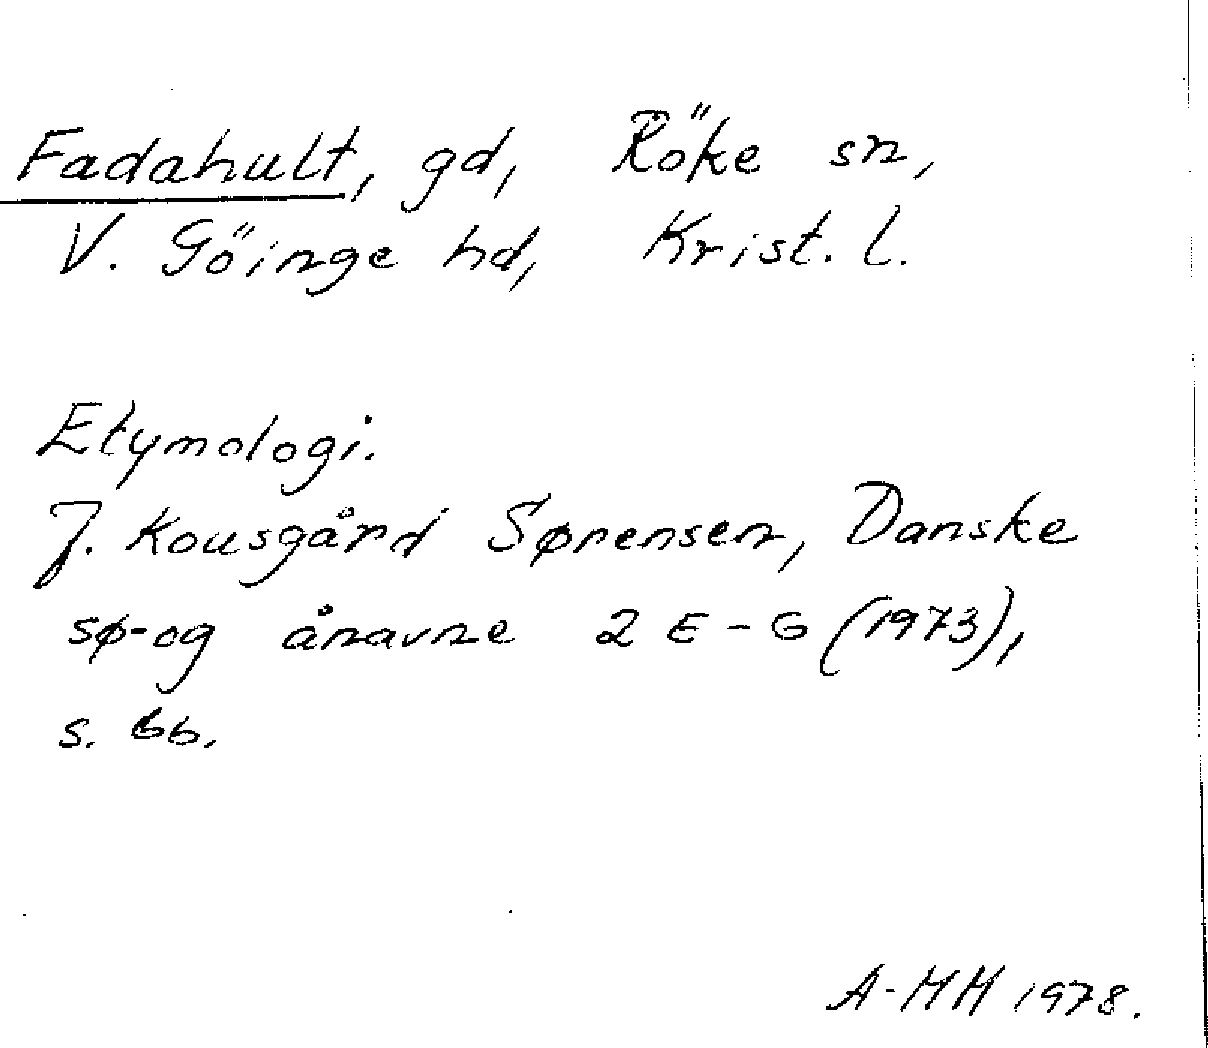 Fadahult, gd, Röke sn,
V. Göinge hd, Krist. l.
Etymologi.
J. Kousgård Sørensen, Danske
sø- og ånavne 2 E-G (1973),
s. 66.
A-MH 1978.